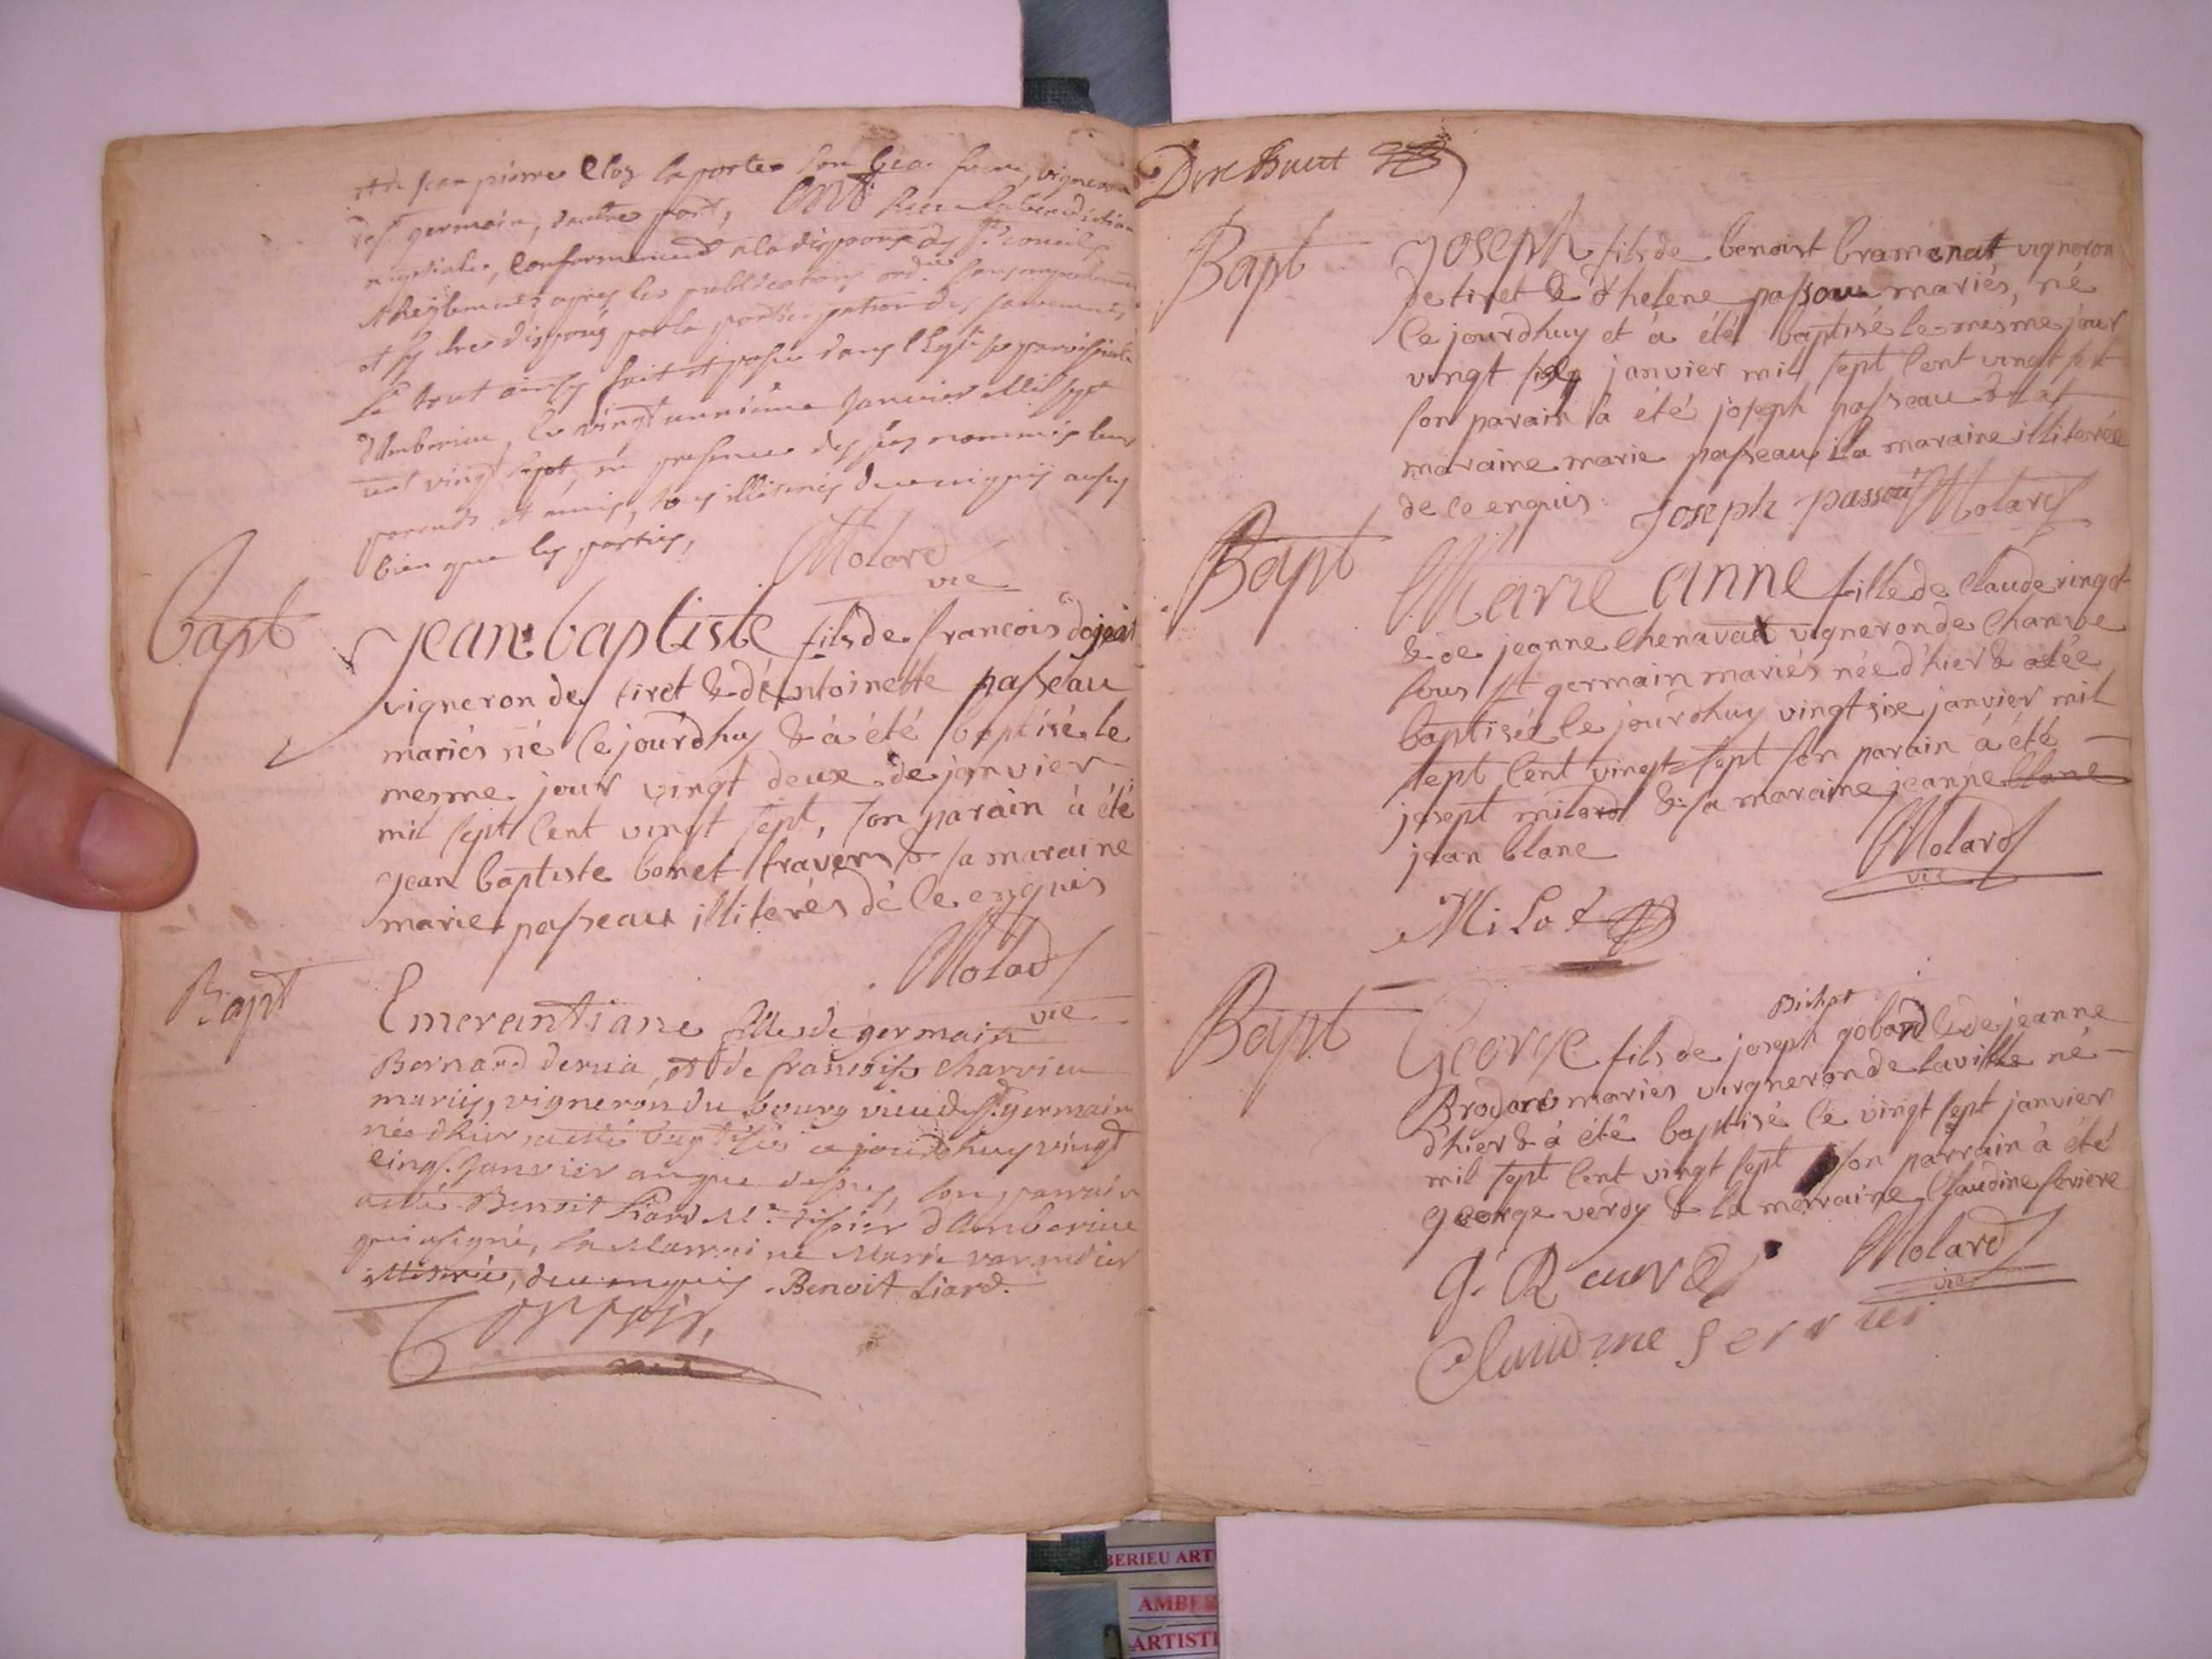 et de jean pierre Clos laporte son beau frere, vigneron
de st germain, dautre part, Ont receu la benediction
nuptiale, Conformement a la disposon des Sts conciles
& Reglements apres les publications ordres sans
et sy etre disposés par la participation des sacrements
Le tout ainsy fait et passé dans l'Eglise paroissiale
d'Amberieu, le vingt unnieme Janvier Mil sept
cent vingt sept, en presence des sus nommés leurs
parents et amis, tous illiterés de ce enquis aussy
bien que les parties,
Molard
vic
Bapt
jean baptiste fils de francois dojeat
vigneron de tiret & d'entoinette passeau
mariés né ce jourdhuy & à été baptisé le
mesme jour vingt deux de janvier
mil sept cent vingt sept, son parain à été
jean baptiste bonet travers & sa maraine
marie passeau illiterés de ce enquis
Molard
vic
Bapt
Emerantiane fille de germain
Bernard derua, et de francoise Charvieu
mariés, vigneron du bourg vieu de st germain
née dhier, a esté baptisée ce jourdhuy vingt
cinqs. Janvier an que dessus, son parrain
a esté Benoit Liard Me. tissier d'Amberieu
qui a signé, la Marraine Marie vermdier
illiterée, de ce enquis. Benoit Liard.
Bapt
joseph fils de benoist bramenat vigneron
de tiret & d'helene passou mariés, né
ce jourdhuy et à été baptisé le mesme jour
vingt six janvier mil sept cent vingt sept
son parain à été joseph passeau & la
maraine marie passeau la maraine illiterée
de ce enquis. Joseph passou Molard
Bapt
Marie anne fille de claude vingt
& de jeanne Chenavat vigneron de Chanve
sous st germain mariés née d'hier & a été
baptisée ce jourdhuy vingt six janvier mil
sept cent vingt sept son parain à été
josept milord & sa maraine jeanne blanc
jean blanc
Molard
vic
Milot
Bapt
Bichat
George fils de joseph gobard & de jeanne
Brodard mariés vigneron de la ville né
d'hier & à été baptisé le vingt sept janvier
mil sept cent vingt sept son parrain à été
george verdy & la merraine Claudine seriere
Molard
vic
Claudine serrier
BERIEU ART
AMBER
ARTISTI